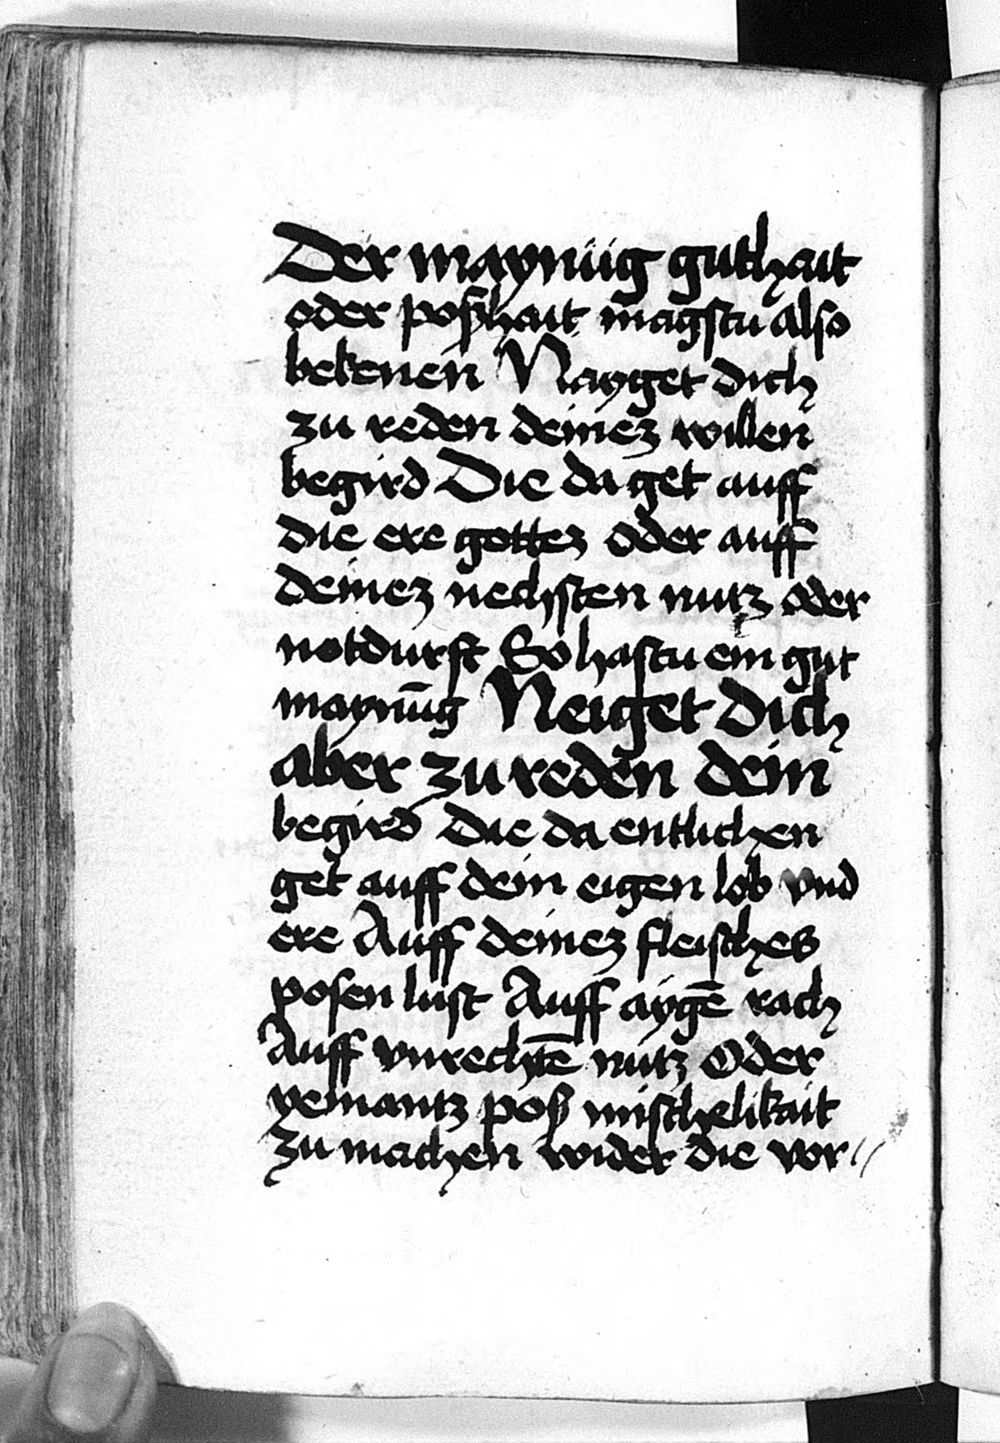 Der maynūg guthait
oder poßhait magstu also
bekenen Nayget dich
zu reden deinez willen
begird Die da get auff
die ere gottez oder auff
deinez nechsten nutz oder
notdurft So hastu ein gut
maynūg Neiget dich
aber zu reden dein
begird die da entlichen
get auff dein eigen lob vnd
ere Auff deinez fleisches
posen lust Auff aygē rach
Auff vnrechtē nutz Oder
yemantz poß mischelikait
zu machen wider die vor //